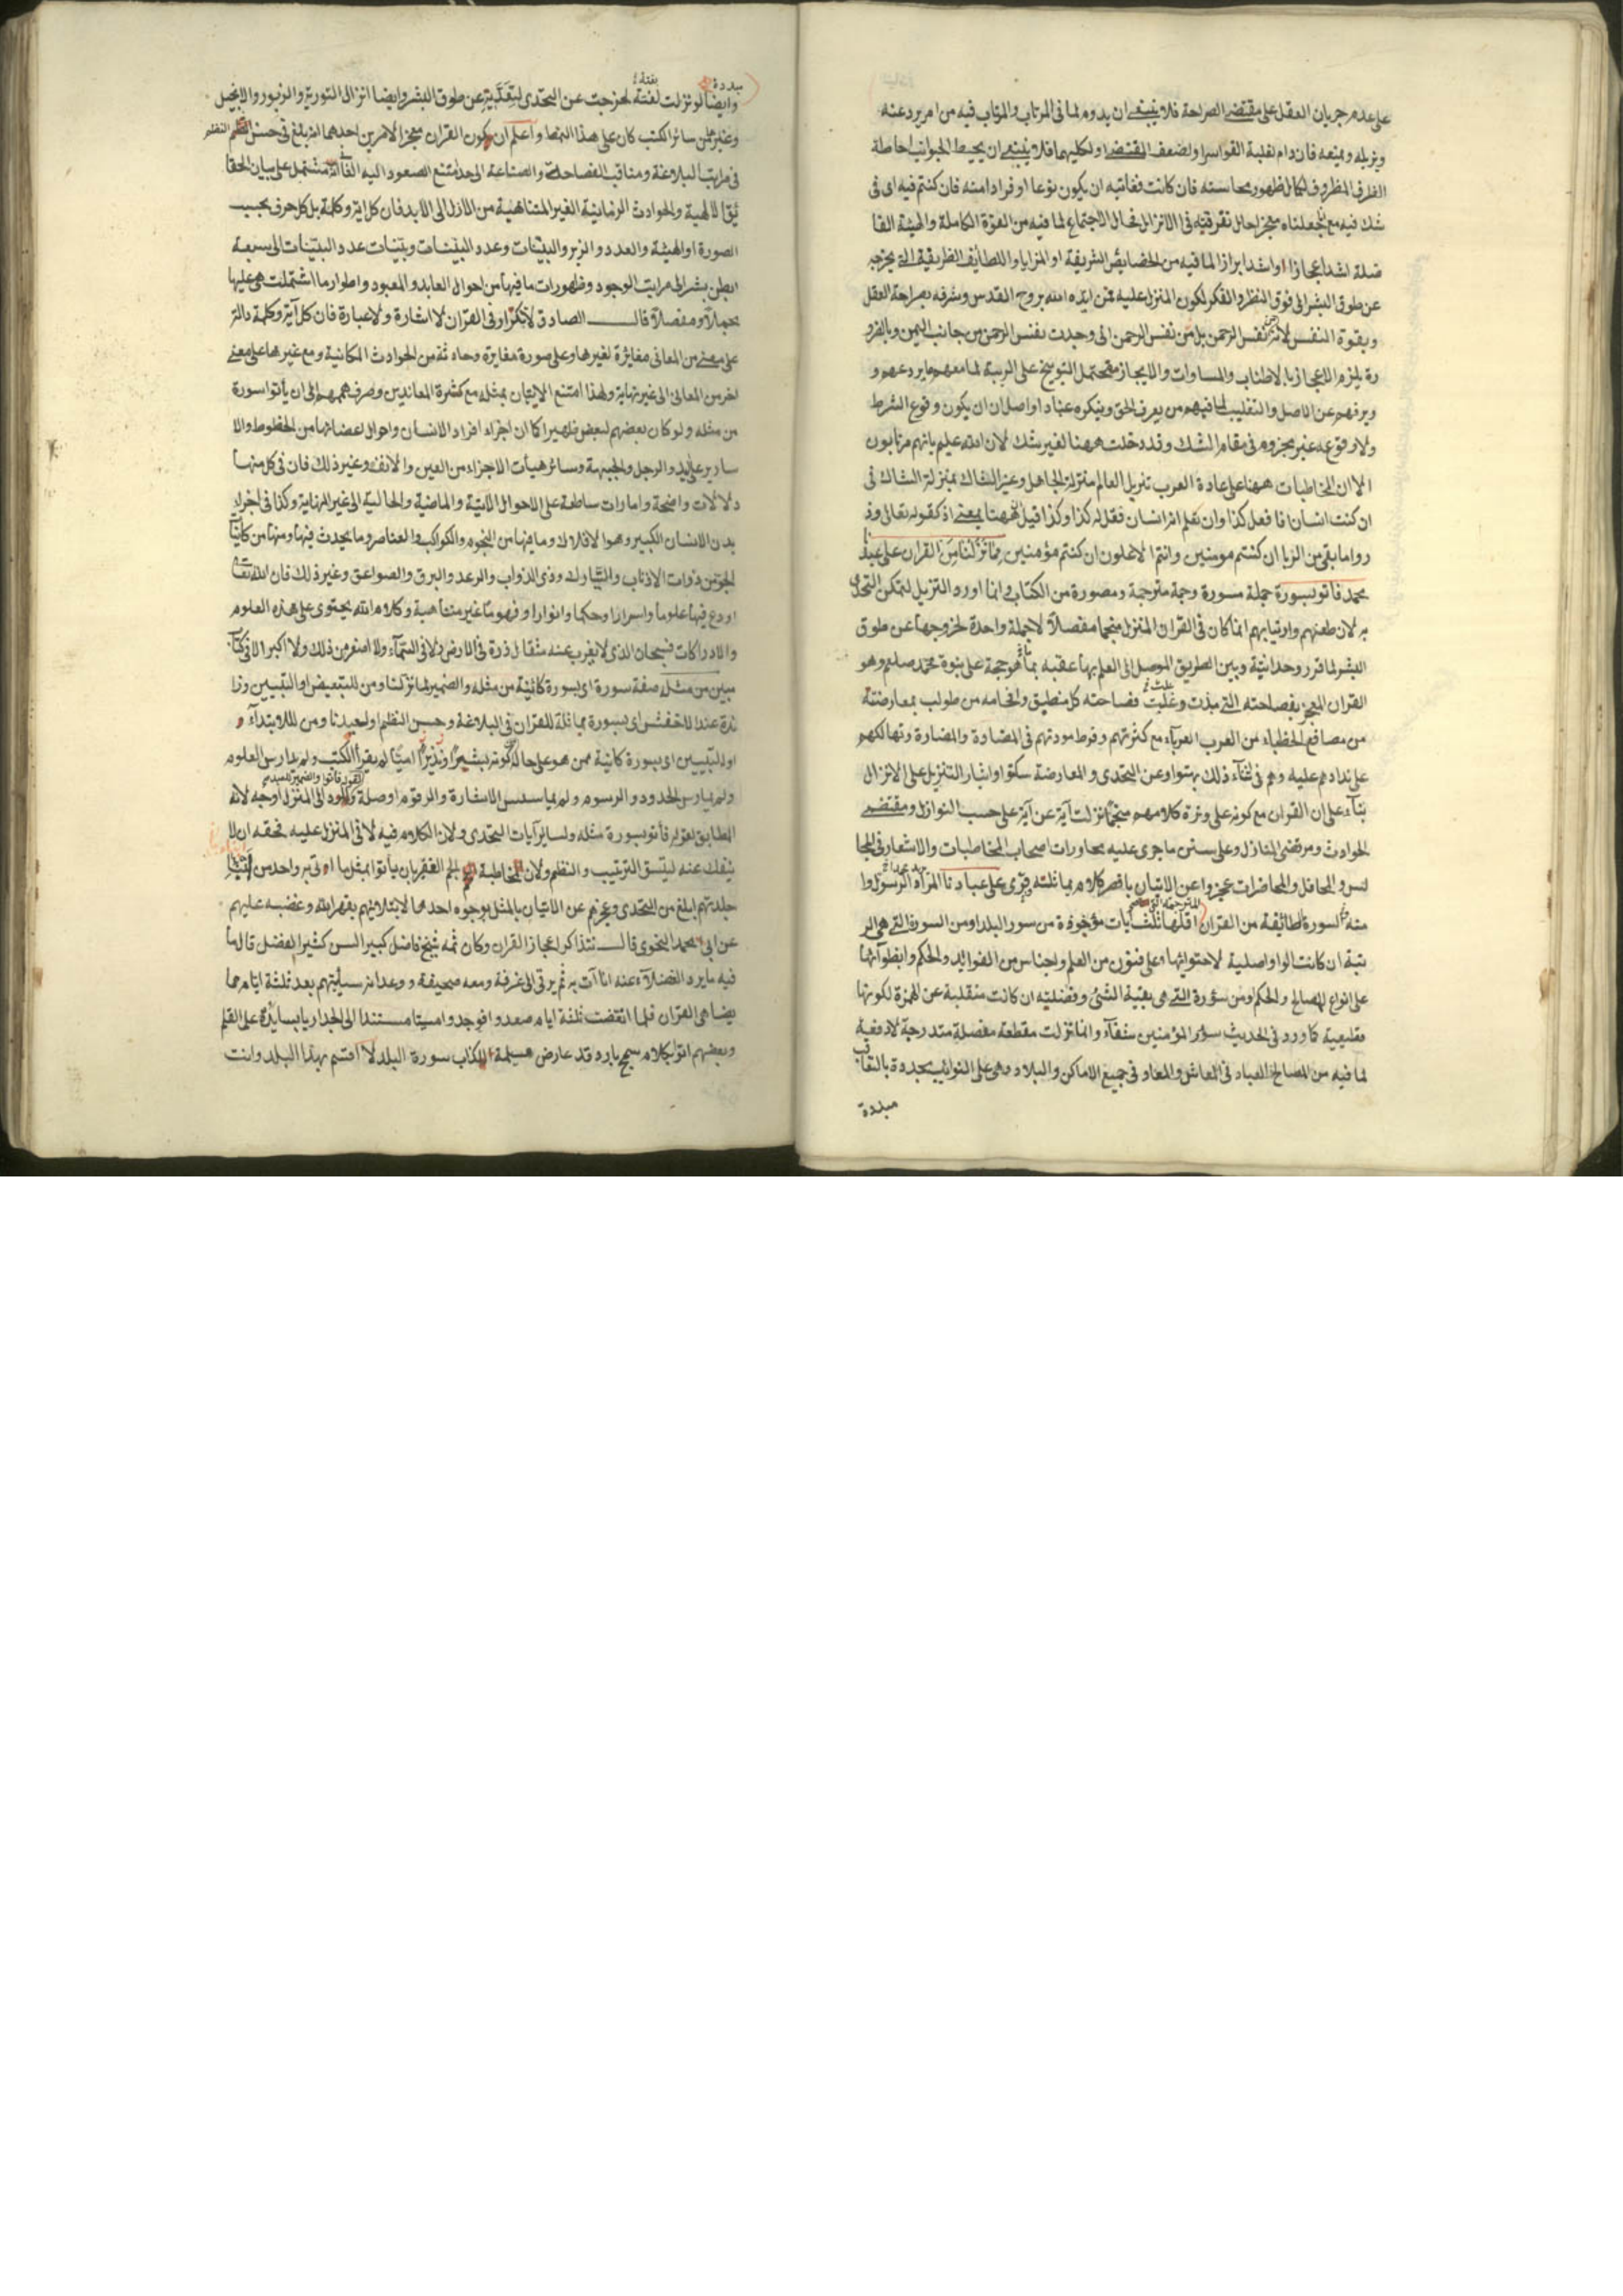 على عدم جريان العقل على مقتضى الصراحة فلا ينبغى ان يدوم لما فى المرتاب والمرتاب فيه من امر يردعنه
ويزيله ويمنعه فان دام لغلبة القواسر او لضعف المقتضى او لكليهما فلا ينبغى ان يحيط الجوانب احاطة
الظرف المظروف لكمال ظهور محاسنه فان كانت فغايته ان يكون نوعا او فردا منه فان كنتم فيه اى فى
شك فيه مع جعلناه معجزا حال تفرقته فى الانزال فحال الاجتماع لما فيه من القوة الكاملة والهيئة الفا
ضلة اشد اعجازا او اشد ابرازا لما فيه من الخصايص الشريفة او المزايا واللطايف الظريفة التى يخرجه
عن طوق البشر الى فوق النظر والفكر لكون المنزل عليه ممن ايده الله بروح القدس وشرفه بصراحة العقل
وبقوة النفس لانه نفس الرحمن بل من نفس الرحمن انى وجدت نفس الرحمن من جانب اليمن وبالضرو
رة يلزم الاعجاز بالاطناب والمساوات والايجاز فتحتمل التوبيخ على الريبة لما معهم ما يردعهم و
يرفهم عن الاصل والتغليب لما فيهم من يعرف الحق وينكره عنادا واصل ان ان يكون وقوع الشرط
ولا وقوعه غير مجزوم فى مقام الشك وقد دخلت ههنا لغير شك لان الله عليم بانهم مرتابون
الا ان المخاطبات ههنا على عادة العرب تنزيل العالم منزلة الجاهل وغير الشاك بمنزلة الشاك فى
ان كنت انسان افا فعل كذا وان تعلم انه انسان فقل له كذا وكذا قيل ههنا بمعنى اذ كقوله تعالى وذ
روا ما بقى من الربا ان كنتم مومنين وانتم الاعلون ان كنتم مؤمنين مما نزلنا من القران على عبدنا
محمد فاتو بسورة جملة مسورة وجمة مترجمة ومصورة من الكتاب وانما اورد التنزيل لتمكن التحدى
به لان طعنهم وارتيابهم انما كان فى القران المنزل منجما مفصلا لا جملة واحدة لخروجها عن طوق
البشر لما قرر وحدانيته وبين الطريق الموصل الى العلم بها عقبه بما هو حجة على نبوة محمد صلعم وهو
القران المعجز بفصاحته التى بذت وغلبت فصاحته كل منطيق وافحامه من طولب بمعارضته
من مصاقع الخطباء من العرب العرباء مع كثرتهم وفرط مودتهم فى المضادة والمضارة وتهالكهم
على ندادهم عليه وهم فى اثناء ذلك بهتوا وعن التحدى والمعارضة سكتوا وايثار التنزيل على الانزال
بناء على ان القران مع كونه على وتيرة كلامهم منجما نزلت آية عن آية على حسب النوازل ومقتضى
الحوادث ومرضى المنازل وعلى سنن ما جرى عليه محاورات اصحاب المخاطبات والاشعار فى المجا
لس والمحافل والمحاضرات عجزوا عن الاتيان باقصر كلام مماثلته وقرى على عبادنا المراد الرسول وا
مته السورة الطائفة من القران اقلها ثلث آيات مؤخوذة من سور البلد او من السورة التى هى الر
تبة ان كانت الواو اصلية لاحتوائها على فنون من العلم واجناس من الفوائد والحكم وانطوائها
على انواع المصالح والحكم ومن سؤرة التى هى بقية الشئ وفضلته ان كانت منقلبة عن الهمزة لكونها
فطيعية كما ورد فى الحديث سؤر المؤمنين شفآء وانما نزلت مقطعة مفصلة متدرجة لا دفعية
لما فيه من المصالح للعباد فى المعاش والمعاد فى جميع الاماكن والبلاد وهى على النوايب متجددة بالتعاقب
مبددة
مبددة
وايضا لو نزلت لغتة لخرجت عن التحدى لتعديه عن طوق البشر وايضا انزال التورية والزبور والانجيل
وغيرها من سائر الكتب كان على هذا النمط واعلم ان كون القران معجزا لامرين احدهما انه بلغ فى حسن النظم
فى مراتب البلاغة ومناقب الفصاحة والصناعة الى حد يمتنع الصعود اليه الثانى انه مشتمل على بيان الحقا
ئق الالهية والحوادث الزمانية الغير المتناهية من الازل الى الابد فان كل اية وكلمة بل كل حرف بحسب
الصورة او الهيئة والعدد والزبر والبينات وعدد البينات وبينات عدد البينات الى سبعة
ابطن بشرائط مراتب الوجود وظهورات ما فيها من احوال العابد والمعبود واطوار ما اشتملت هى عليها
مجملا ومفصلا قال الصادق لا تكرار فى القران لا اشارة ولا عبارة فان كل آية وكلمة دالة
على معنى من المعانى مغائرة لغيرها وعلى صورة مغايرة وحادثة من الحوادث المكانية ومع غيرها على معنى
اخر من المعانى الى غير نهاية ولهذا امتنع الاتيان بمثله مع كثرة المعاندين وصرف هممهم الى ان يأتوا سورة
من مثله ولو كان بعضهم لبعض ظهيرا كما ان اجزاء افراد الانسان واحوال اعضائها من الخطوط والا
سارير على اليد والرجل والجبهة وسائر هيأت الاجزاء من العين والانف وغير ذلك فان فى كل منها
دلالات واضحة وامارات ساطعة على الاحوال الاتية والماضية والحالية الى غير النهاية وكذا فى اجزاء
بدن الانسان الكبير وهو الافلاك وما فيها من النجوم والكواكب والعناصر وما يحدث فيها ومنها من كاينات
الجو من ذوات الاذناب والنيازك وذى الذواب والرعد والبرق والصواعق وغير ذلك فان الله تعالى
اودع فيها علوما واسرارا وحكما وانوارا وفهوما غير متناهية وكلام الله يحتوى على هذه العلوم
والادراكات فسبحان الذى لا يغرب عنه مثقال ذرة فى الارض ولا فى السمآء ولا اصغر من ذلك ولا اكبر الا فى كتاب
مبين من مثله صفة سورة اى بسورة كائنة من مثله والضمير لما نزلنا ومن للتبعيض او التبيين وزا
ئدة عند الاخفش اى بسورة مماثلة للقران فى البلاغة وحسن النظم او لعبدنا ومن للابتدآء
او للتبيين اى بسورة كائنة ممن هو على حاله كونه بشيرا ونذيرا اميا لم يقرأ الكتب ولم يدارس العلوم
ولم يمارس الحدود والرسوم ولم يماسس الاشارة والرقوم او صلة فأتوا والضمير للعبد والعود الى المنزل اوجه لانه
المطابق لقوله فأتو بسورة مثله ولسائر آيات التحدى ولان الكلام فيه لا فى المنزل عليه فحقه ان لا
ينفك عنه ليتسق الترتيب والنظم ولان المخاطبة للجم الغفير بان يأتوا بمثل ما اوتى به واحد من ابناء
جلدتهم ابلغ من التحدى وعجزهم عن الاتيان بالمثل بوجوه احدها لابتلائهم بقهر الله وغضبه عليهم
عن ابى محمد النحوى قال نتذاكر اعجاز القران وكان ثمه شيخ فاضل كبير السن كثير الفضل قال ما
فيه ما يرد الفضلآء عنه انا آت به ثم يرقى الى غرفة ومعه صحيفة ووعد انه سيأتيهم بعد ثلثة ايام مما
يضاهى القران فلما انقضت ثلثة ايام صعدوا فوجدوا ميتا مستندا الى الجدار يابسا يده على القلم
وبعضهم اتوا بكلام سمج بارد قد عارض مسيلمة الكذاب سورة البلد لا اقسم بهذا البلد وانت